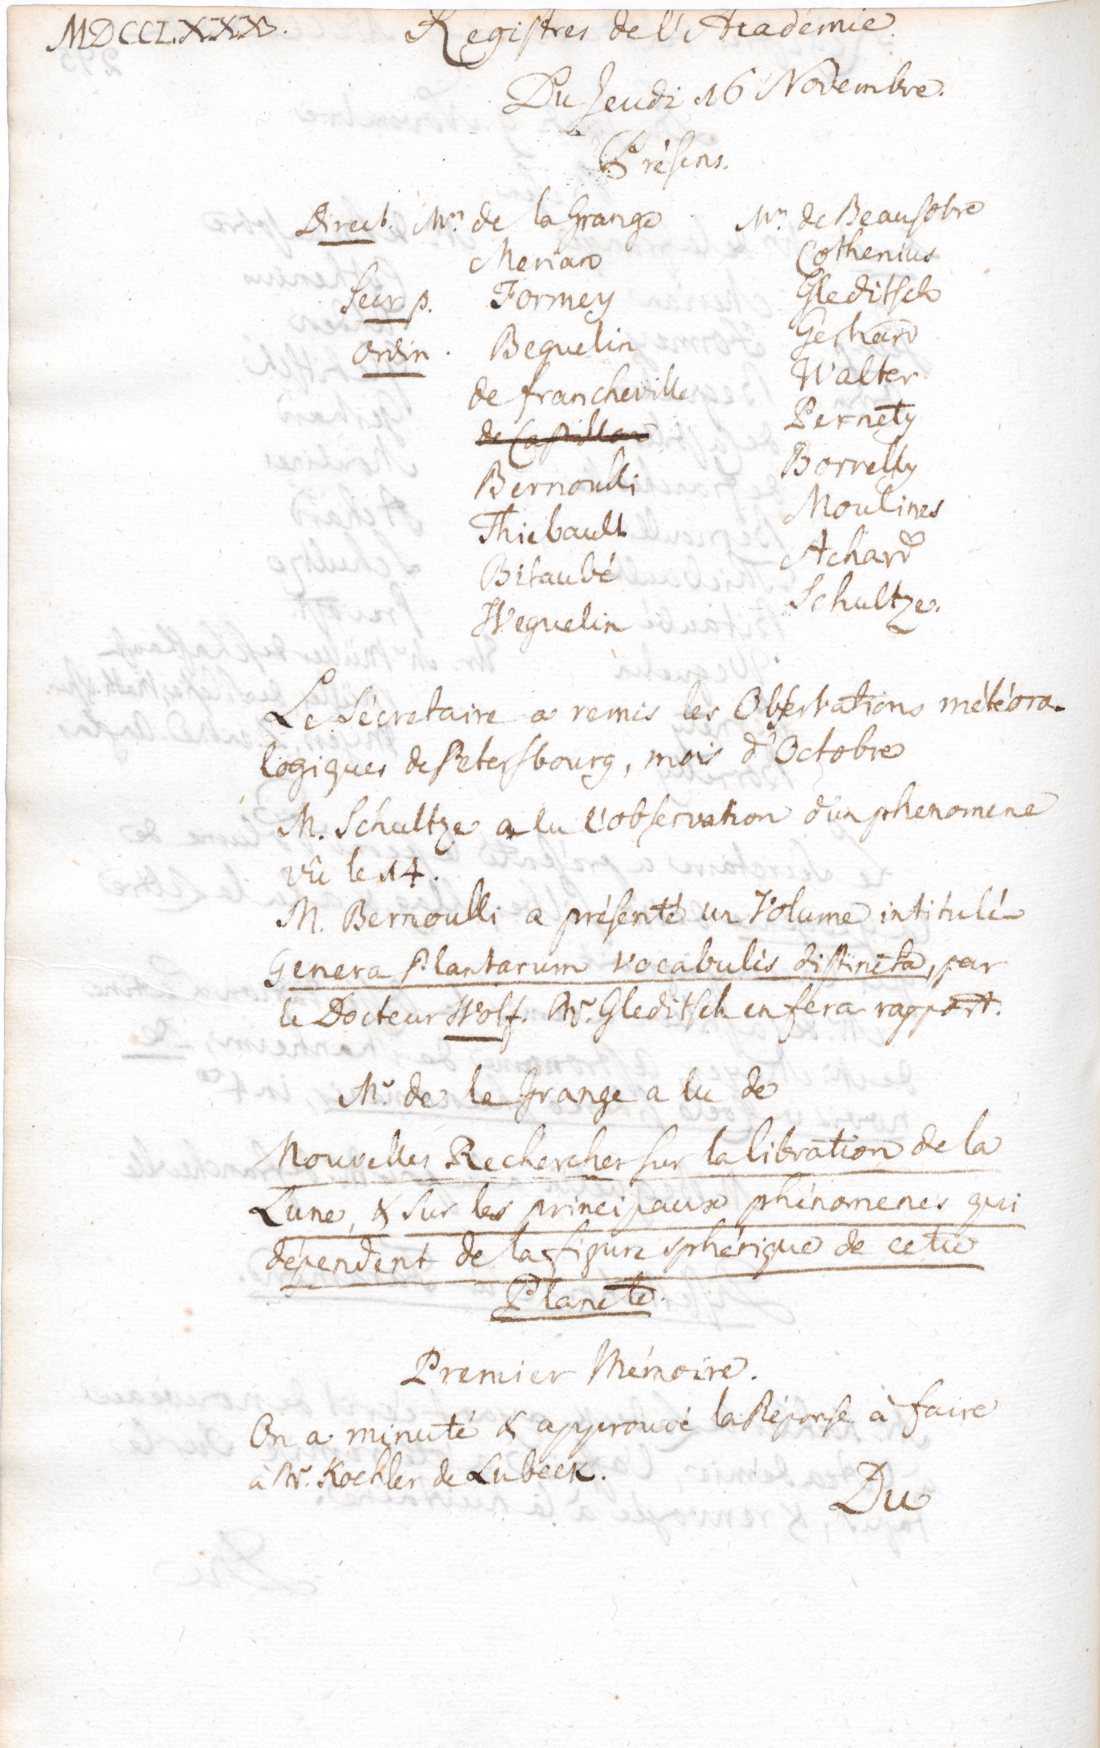 MDCCLXXX.
Régistres de l'Académie.
Du Jeudi 16 Novembre.
Présens.
Direct. Mrs de la Grange
Merian
Secr. p. Formey
Ordin. Beguelin
de Francheville
de Castillon
Bernoulli
Thiebault
Bitaubé
Weguelin
Mrs de Beausobre
Cothenius
Gleditsch
Gerhard
Walter
Pernety
Borrelly
Moulines
Achard
Schultze.
Le Sécretaire a remis les Observations météoro-
logiques de Petersbourg, mois d'Octobre
M. Schultze a lu l'observation d'un phenomene
vû le 14.
M. Bernoulli a présenté un Volume intitulé
Genera Plantarum vocabulis distincta, par
le Docteur Wolf. Mr. Gleditsch en fera rapport.
Mr de la Grange a lu de
Nouvelles Recherches sur la libration de la
Lune, & sur les principaux phénomenes qui
dépendent de la figure sphérique de cette
Planete.
Premier Mémoire.
On a minuté & approuvé la Réponse à faire
à Mr. Koehler de Lubeck.
Du